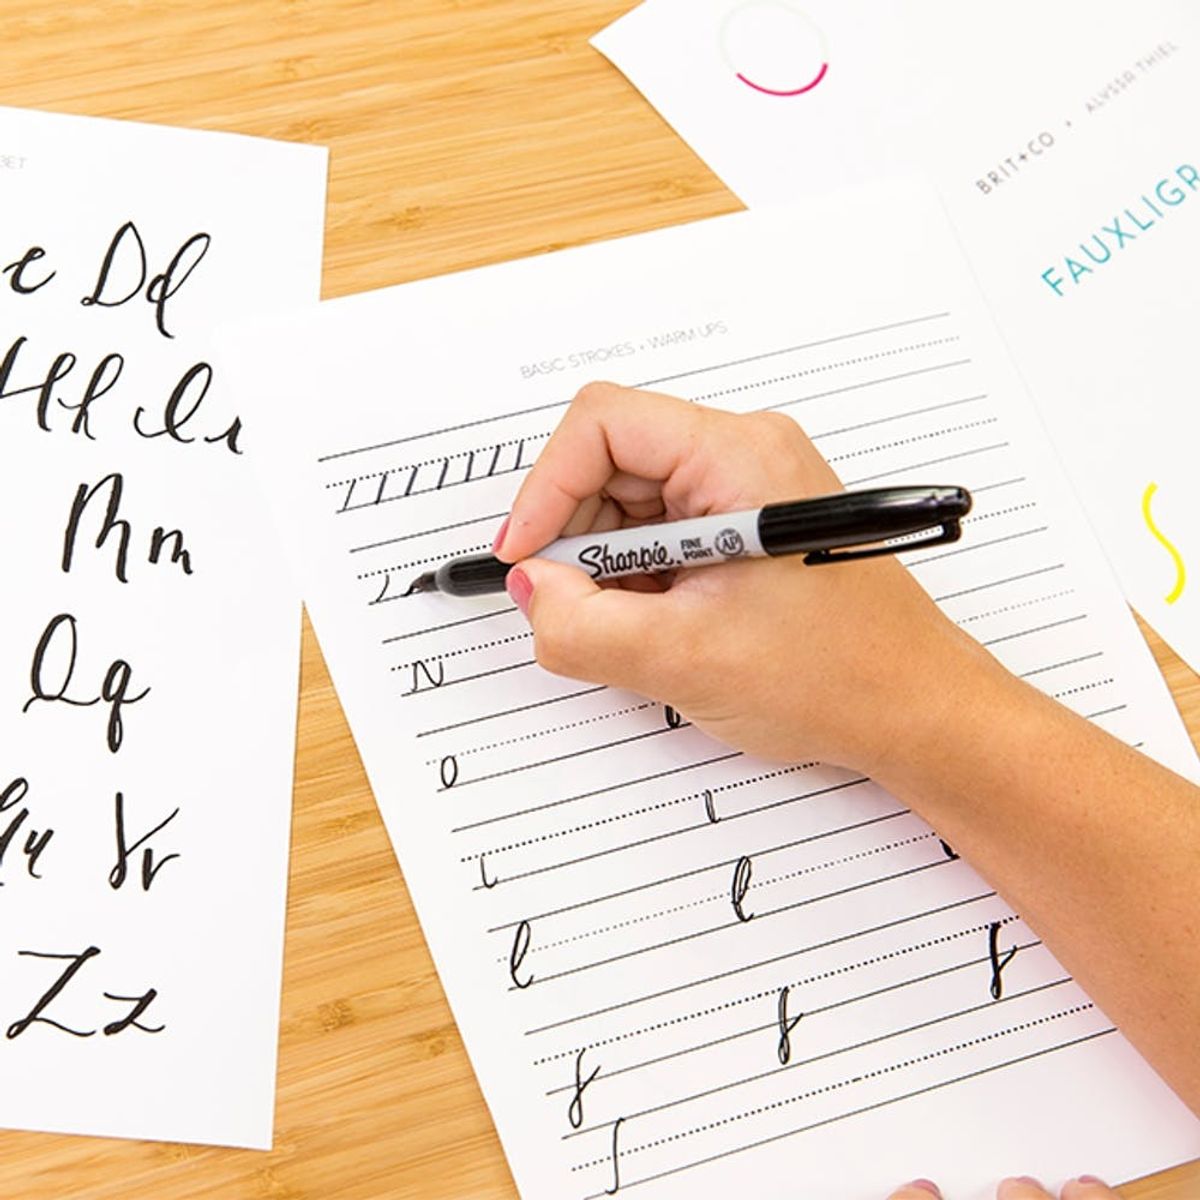 BRIT+CO • ALYSSA THIEL
FAUXLIGR
BASIC STROKES • WARM UPS
Sharpie. FINE POINT AP
c Dd
Hh Ii
Mm
Qq
Uu Vv
Zz
N
o
l
l